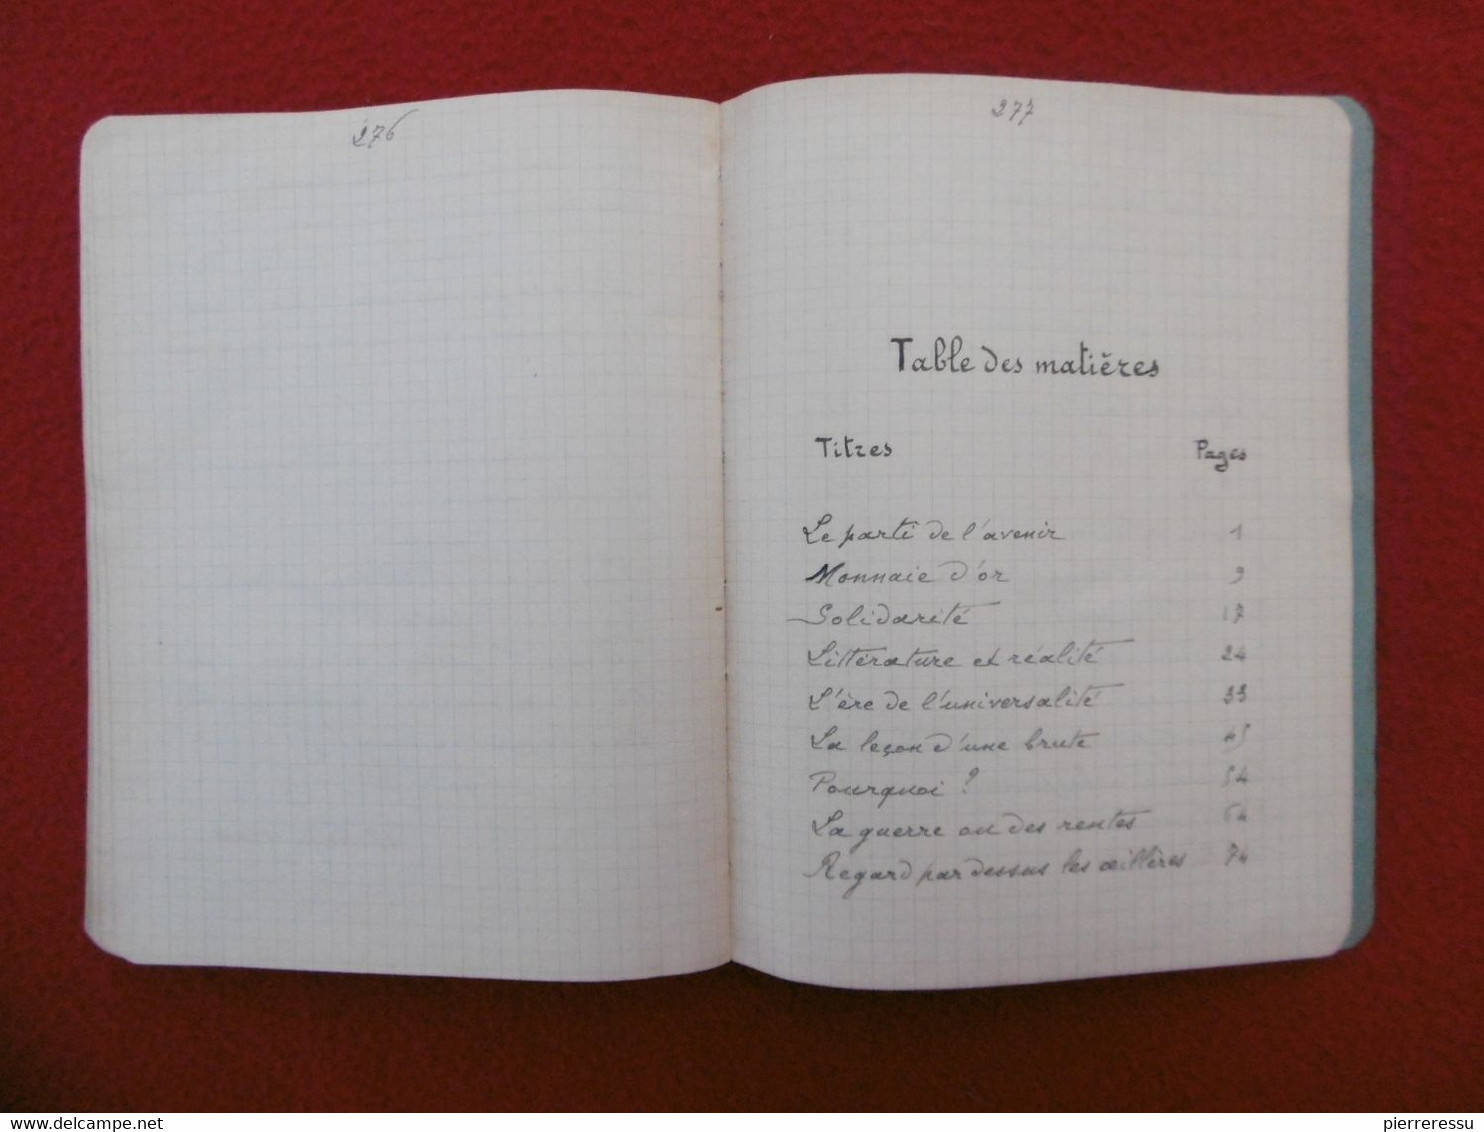 276
277
Table des matières
Titres Pages
Le parti de l'avenir 1
Monnaie d'or 9
Solidarité 17
Littérature et réalité 24
L'ère de l'universalité 33
La leçon d'une brute 45
Pourquoi ? 54
La guerre ou des rentes 64
Regard par dessus les œillères 74
delcampe.net
pierreressu